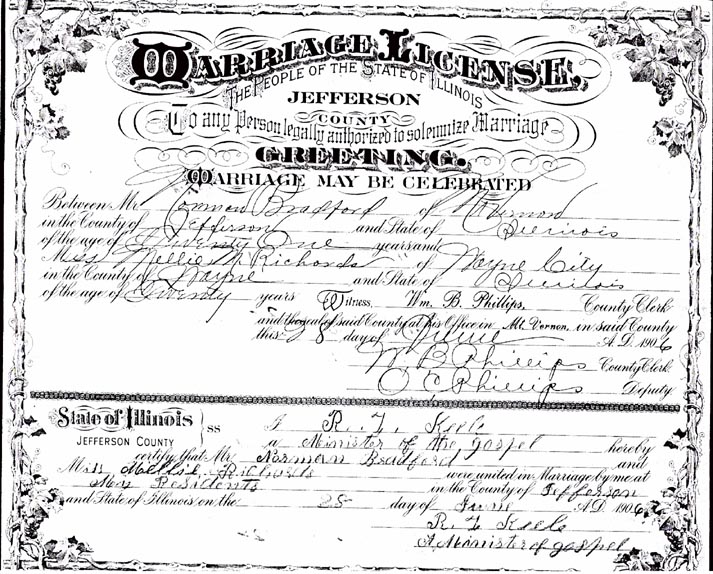 MARRIAGE LICENSE,
THE PEOPLE OF THE STATE OF ILLINOIS
JEFFERSON
COUNTY
To any Person legally authorized to solemnize Marriage
GREETING.
MARRIAGE MAY BE CELEBRATED
Between Mr. Norman Bradford of Mt Vernon
in the County of Jefferson and State of Illinois
of the age of Twenty One years and
Miss Nellie M Richards of Wayne City
in the County of Wayne and State of Illinois
of the age of Twenty years Witness, Wm. B. Phillips, County Clerk
and the seal of said County at his Office in Mt. Vernon, in said County
this 28 day of June A.D. 1906
W B Phillips County Clerk
O C Phillips Deputy
State of Illinois
JEFFERSON COUNTY
SS I R. L. Keele
a Minister of the gospel hereby
certify that Mr. Norman Bradford and
Miss Nellie Richards were united in Marriage by me at
My Residents in the County of Jefferson
and State of Illinois on the 28 day of June A.D. 1906
R. L. Keele
A Minister of gospel